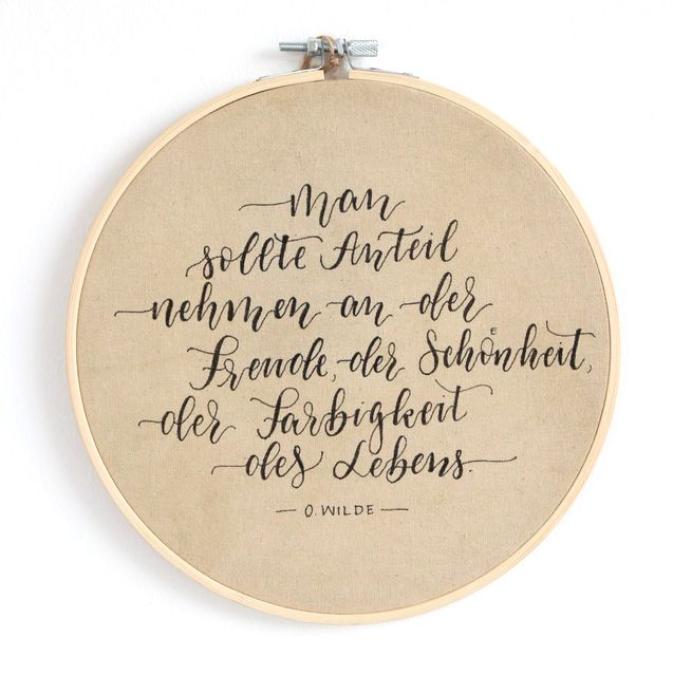 man
sollte Anteil
nehmen an der
Freude, der Schönheit,
der Farbigkeit
des Lebens.
— O. WILDE —